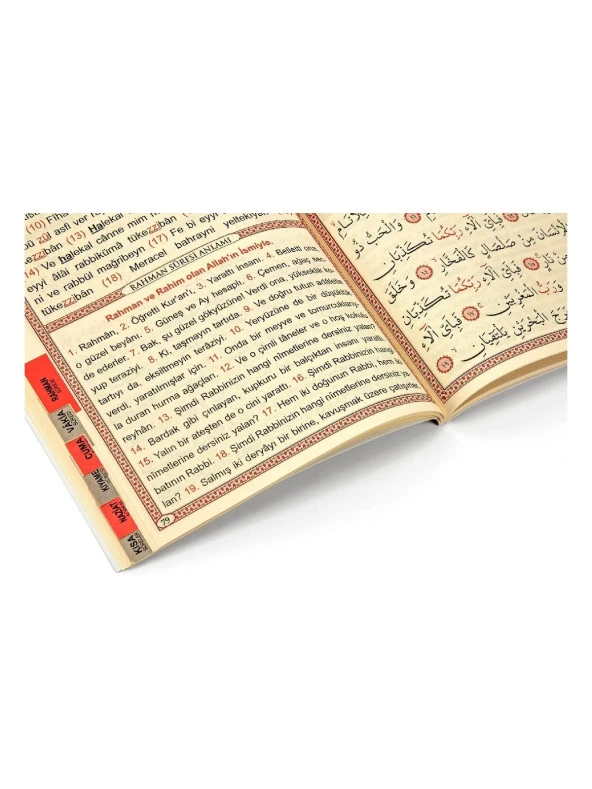 (10) Fiha
zül asfi ver
(13) Halekal cânne mim
tükezzibân
(14) Ve
eyyi âlâi rabbikümâ tükezzibân (17) Fe bi eyyi
ni ve rabbül mağribeyn
tükezzibân (18) Meracel bahrayni yeltekiyân
RAHMAN SÛRESİ ANLAMI
Rahman ve Rahim olan Allah'ın İsmiyle.
1. Rahmân. 2. Öğretti Kur'an'ı, 3. Yarattı insanı. 4. Belletti ona
o güzel beyânı. 5. Güneş ve Ay hesaplı. 6. Çemen, ağaç sec-
de ederler. 7. Bak, şu güzel gökyüzüne! Verdi ona, yükseklik ko-
yup teraziyi. 8. Ki, taşmayın tartıda. 9. Ve doğru tutun adâletle,
tartıyı da, eksiltmeyin terâziyi. 10. Yeryüzünü de bir düşüklük
verdi, yaratılmışlar için. 11. Onda bir meyve ve tomurcuklar-
la duran hurma ağaçları. 12. Ve o çimli tâneler ve o hoş kokulu
reyhân. 13. Şimdi Rabbinizin hangi nîmetlerine dersiniz yalan?
14. Bardak gibi çınlayan, kupkuru bir balçıktan insanı yarattı.
15. Yalın bir ateşten de o cini yarattı. 16. Şimdi Rabbinizin hangi
nîmetlerine dersiniz yalan? 17. Hem iki doğunun Rabbi, hem iki
batının Rabbi. 18. Şimdi Rabbinizin hangi nîmetlerine dersiniz ya-
lan? 19. Salmış iki deryâyı bir birine, kavuşmak üzere çatışırlar
79
RAHMAN
VAKIA
CUMA
KIYAME
NAZIAT
KISA
وَالْحَبُّ ذُو
رَبِّكُمَا تُكَذِّبَانِ
مِنْ صَلْصَالٍ كَالْفَخَّارِ
وَخَلَقَ
فَبِاَيِّ اٰلَٓاءِ رَبِّكُمَا تُكَذِّبَانِ
وَرَبُّ الْمَغْرِبَيْنِ
فَبِاَيِّ اٰلَٓاءِ
الْبَحْرَيْنِ يَلْتَقِيَانِ